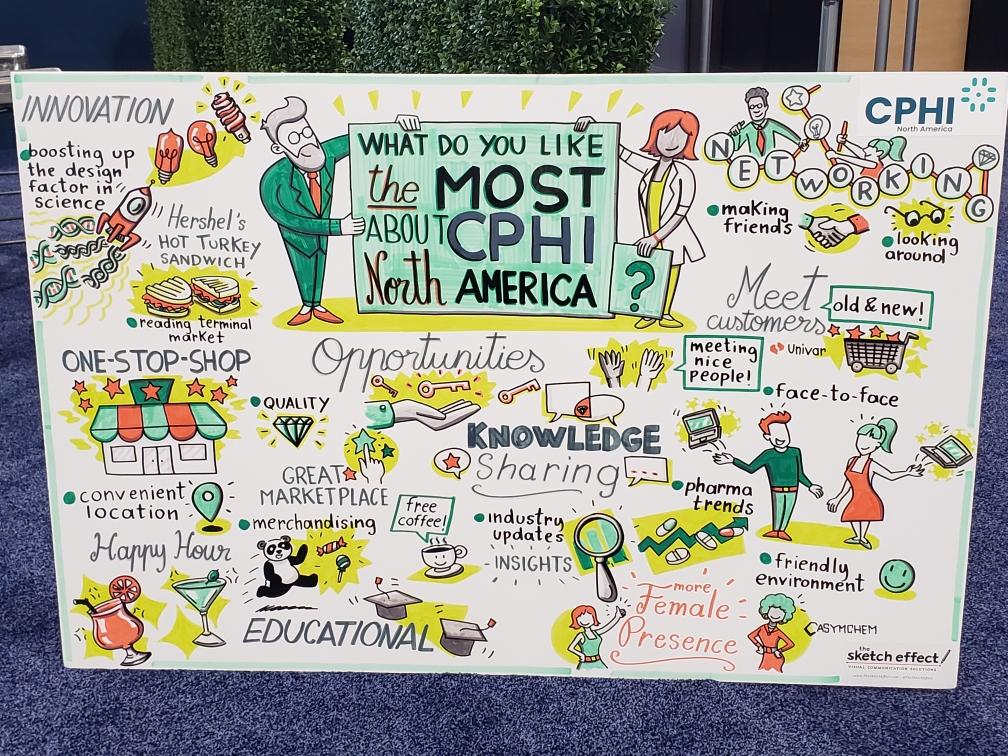 INNOVATION
boosting up
the design
factor in
science
Hershel's
HOT TURKEY
SANDWICH
reading terminal
market
WHAT DO YOU LIKE
the MOST
ABOUT CPHI
North AMERICA
?
CPHI
North America
NETWORKING
making
friends
looking
around
Meet
customers
old & new!
Univar
meeting
nice
people!
face-to-face
ONE-STOP-SHOP
Opportunities
QUALITY
KNOWLEDGE
Sharing
GREAT
MARKETPLACE
convenient
location
merchandising
free
coffee!
industry
updates
INSIGHTS
pharma
trends
Happy Hour
EDUCATIONAL
more
Female
Presence
friendly
environment
ASYMCHEM
the
sketch effect!
VISUAL COMMUNICATION SOLUTIONS